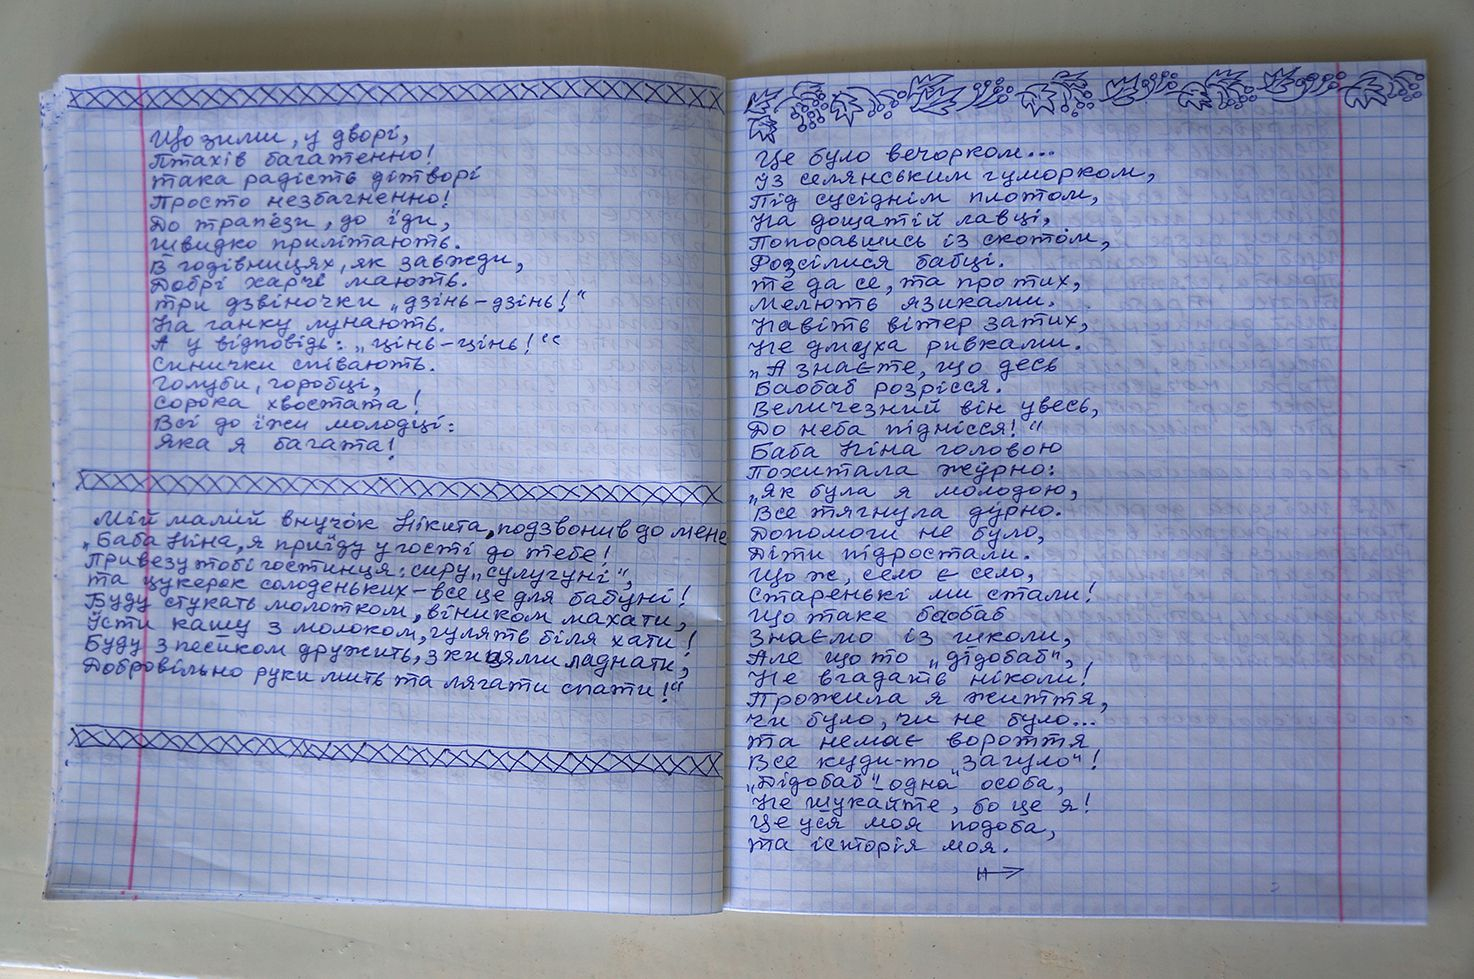 Що зими, у дворі,
Птахів багатенно!
Така радість дітворі
Просто незбагненно!
До трапези, до їди,
Швидко прилітають.
В годівницях, як завжди,
Добрі харчі мають.
Три дзвіночки „дзінь-дзінь!“
На ганку лунають.
А у відповідь: „цінь-цінь!“
Синички співають.
Голуби, горобці,
Сорока хвостата!
Всі до їжи молодці:
Яка я багата!
Мій малий внучок Нікита, подзвонив до мене
„Баба Ніна, я приїду у гості до тебе!
Привезу тобі гостинця: сиру „сулугуні“,
та цукерок солоденьких - все це для бабуні!
Буду стукать молотком, віником махати,
Їсти кашу з молоком, гулять біля хати!
Буду з песиком дружить, з кицями ладнати,
Добровільно руки мить та лягати спати!“
Це було вечорком...
Із селянським гуморком,
Під сусіднім плотом,
На дощатій лавці,
Попоравшись із скотом,
Розсілися бабці.
Те да се, та про тих,
Мелють язиками.
Навіть вітер затих,
Не дмуха ривками.
„А знаєте, що десь
Баобаб розрісся.
Величезний він увесь,
До неба піднісся!“
Баба Ніна головою
Похитала журно:
„Як була я молодою,
Все тягнула дурно.
Допомоги не було,
Діти підростали.
Що ж, село є село,
Старенькі ми стали!
Що таке баобаб
Знаємо із школи,
Але що то „дідобаб“,
Не вгадать ніколи!
Прожила я життя,
Чи було, чи не було...
Та немає вороття
Все куди-то „загуло“!
„Дідобаб“ - одна особа,
Не шукайте, бо це я!
Це уся моя подоба,
Та історія моя.
Н→